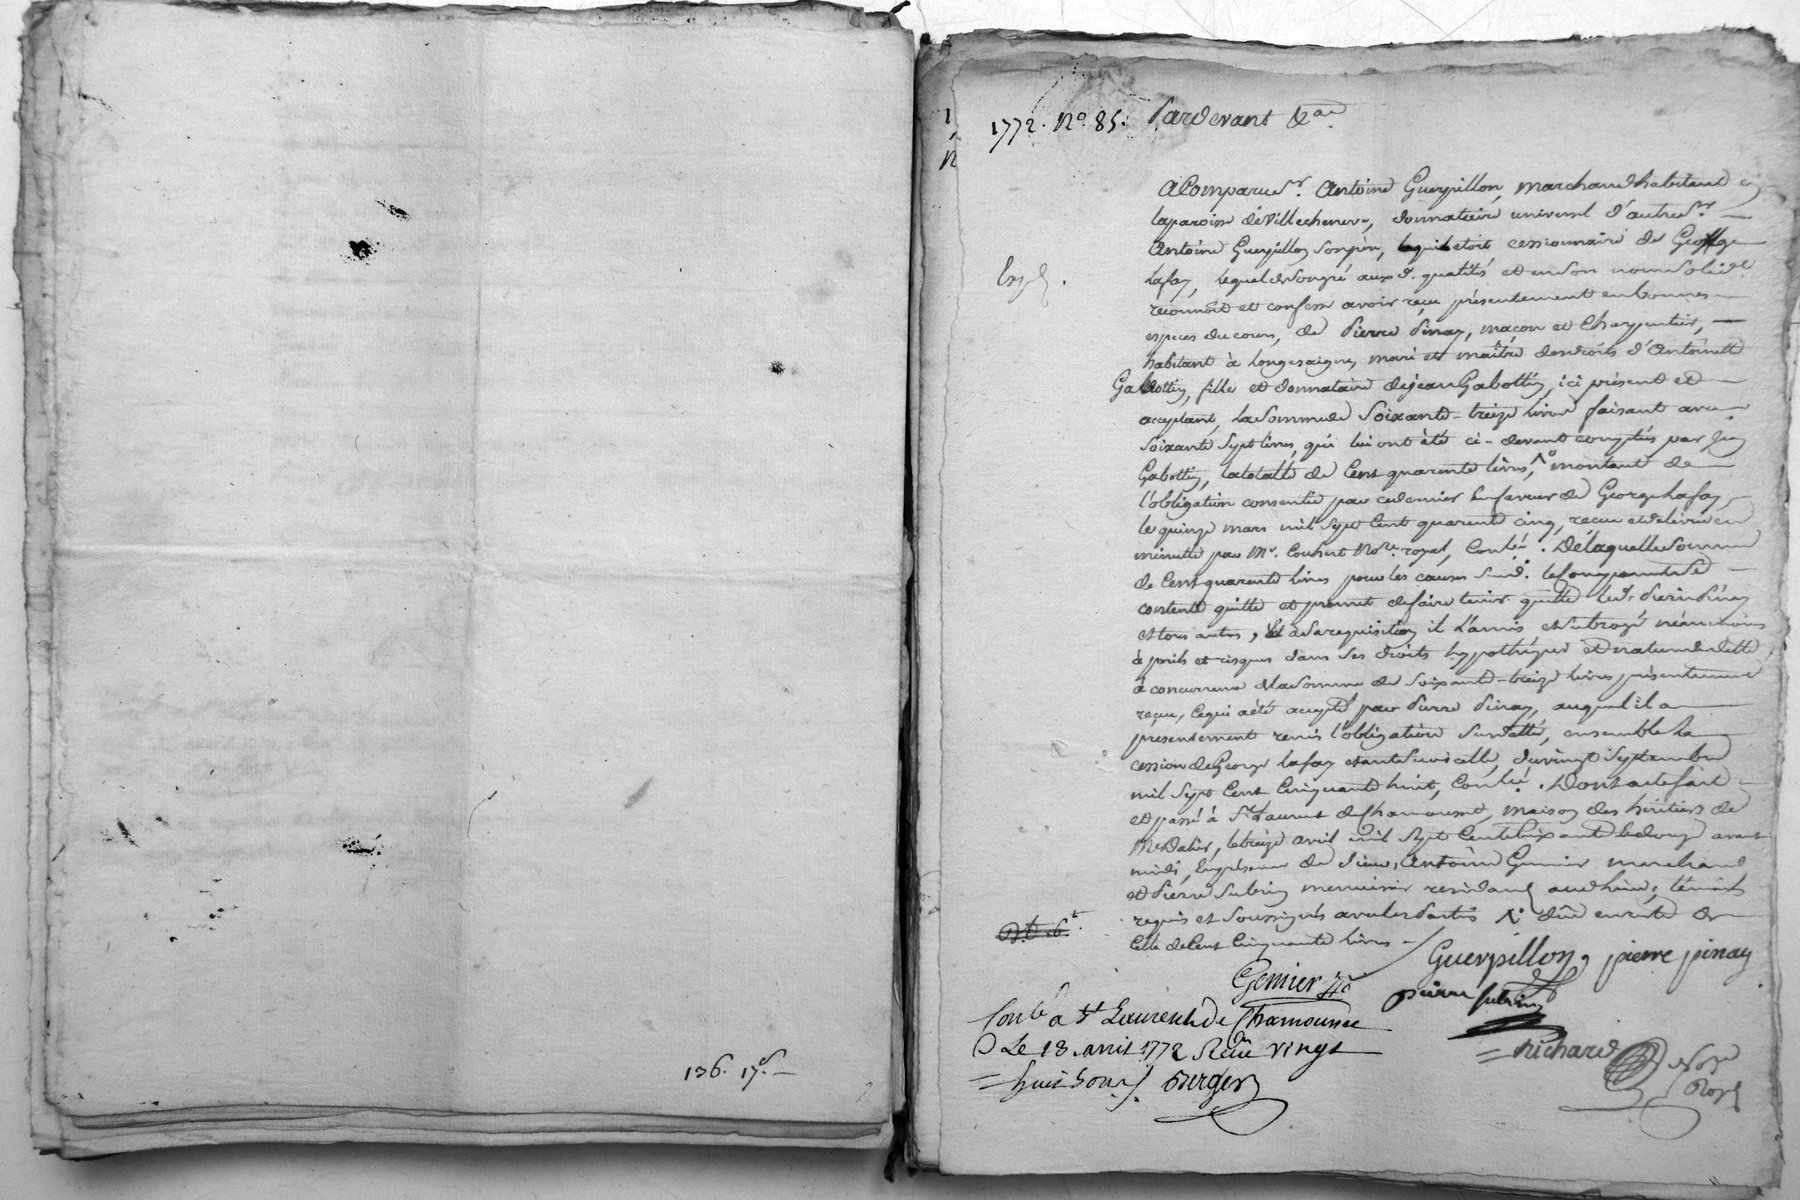 136. 17.ˢ
1772. No. 85. Pardevant &a.
a Comparu Sr. Antoine Guerpillon, marchand habitant en
la paroise de Villecheneve, donnataire universel d'autre Sr.
Antoine Guerpillon son père, lequel etoit cessionnaire de George
Lafay, lequel de son gré aux d. qualités et en son nom solide
reconnoit et confesse avoir reçu présentement en bonnes
especes du cours, de Pierre Pinay, maçon et Charpentier,
habitant à Longesaigne, mari et maître des droits d'Antoinette
Gabottin, fille et donnataire de jean Gabottin, ici présent et
acceptant, la Somme de Soixante-treize livres faisant avec
Soixante Sept livres, qui lui ont été ci-devant comptés par
Gabottin, la totalle de Cent quarente livres, montant de
l'obligation consentie par ce dernier en faveur de George Lafay,
le quinze mars mil Sept Cent quarente cinq, reçue et delivré en
minutte par Me. Coubert Nore. royal, Conlé. De laquelle Somme
de Cent quarente livres pour les causes Susd.
contente quitte et promet de faire tenir quitte led. Pierre Pinay
et tous autres, et à Sa requisition il l'a mis et Subrogé néanmoins
à perils et risques dans Ses droits hypothéques et nature de dette,
à concurrence de la Somme de Soixante-treize livres présentement
reçue, Ce qui a été accepté par Pierre Pinay, auquel il a
presentement remis l'obligation Susdatté, ensemble la
cession de George Lafay etant Suivicelle, du vingt Septembre
mil Sept Cent Cinquante huit, Conlé. Dont acte fait
et passé à St. Laurent de Chamousset, maison des héritiers de
le treize avril mil Sept Cent Soixante et douze avant
midi, en présence de Sieur Antoine Gemier marchand
et Pierre Subrin menuisier residants aud. lieu, témoins
requis et Soussignés avec les Parties düe en reste de
Celle de Cent Cinquante livres
Guerpillon, pierre pinay
Gemier
pierre subrin
Conlé a St Laurent de Chamousset
Le 13 avril 1772 Reçu vingt
huit Sous Burger
Richard Nore
Royl